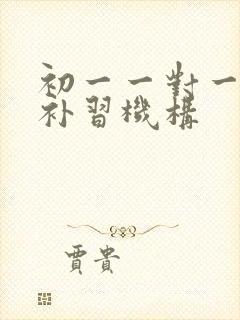 初一一對一
补習機構
賈貴